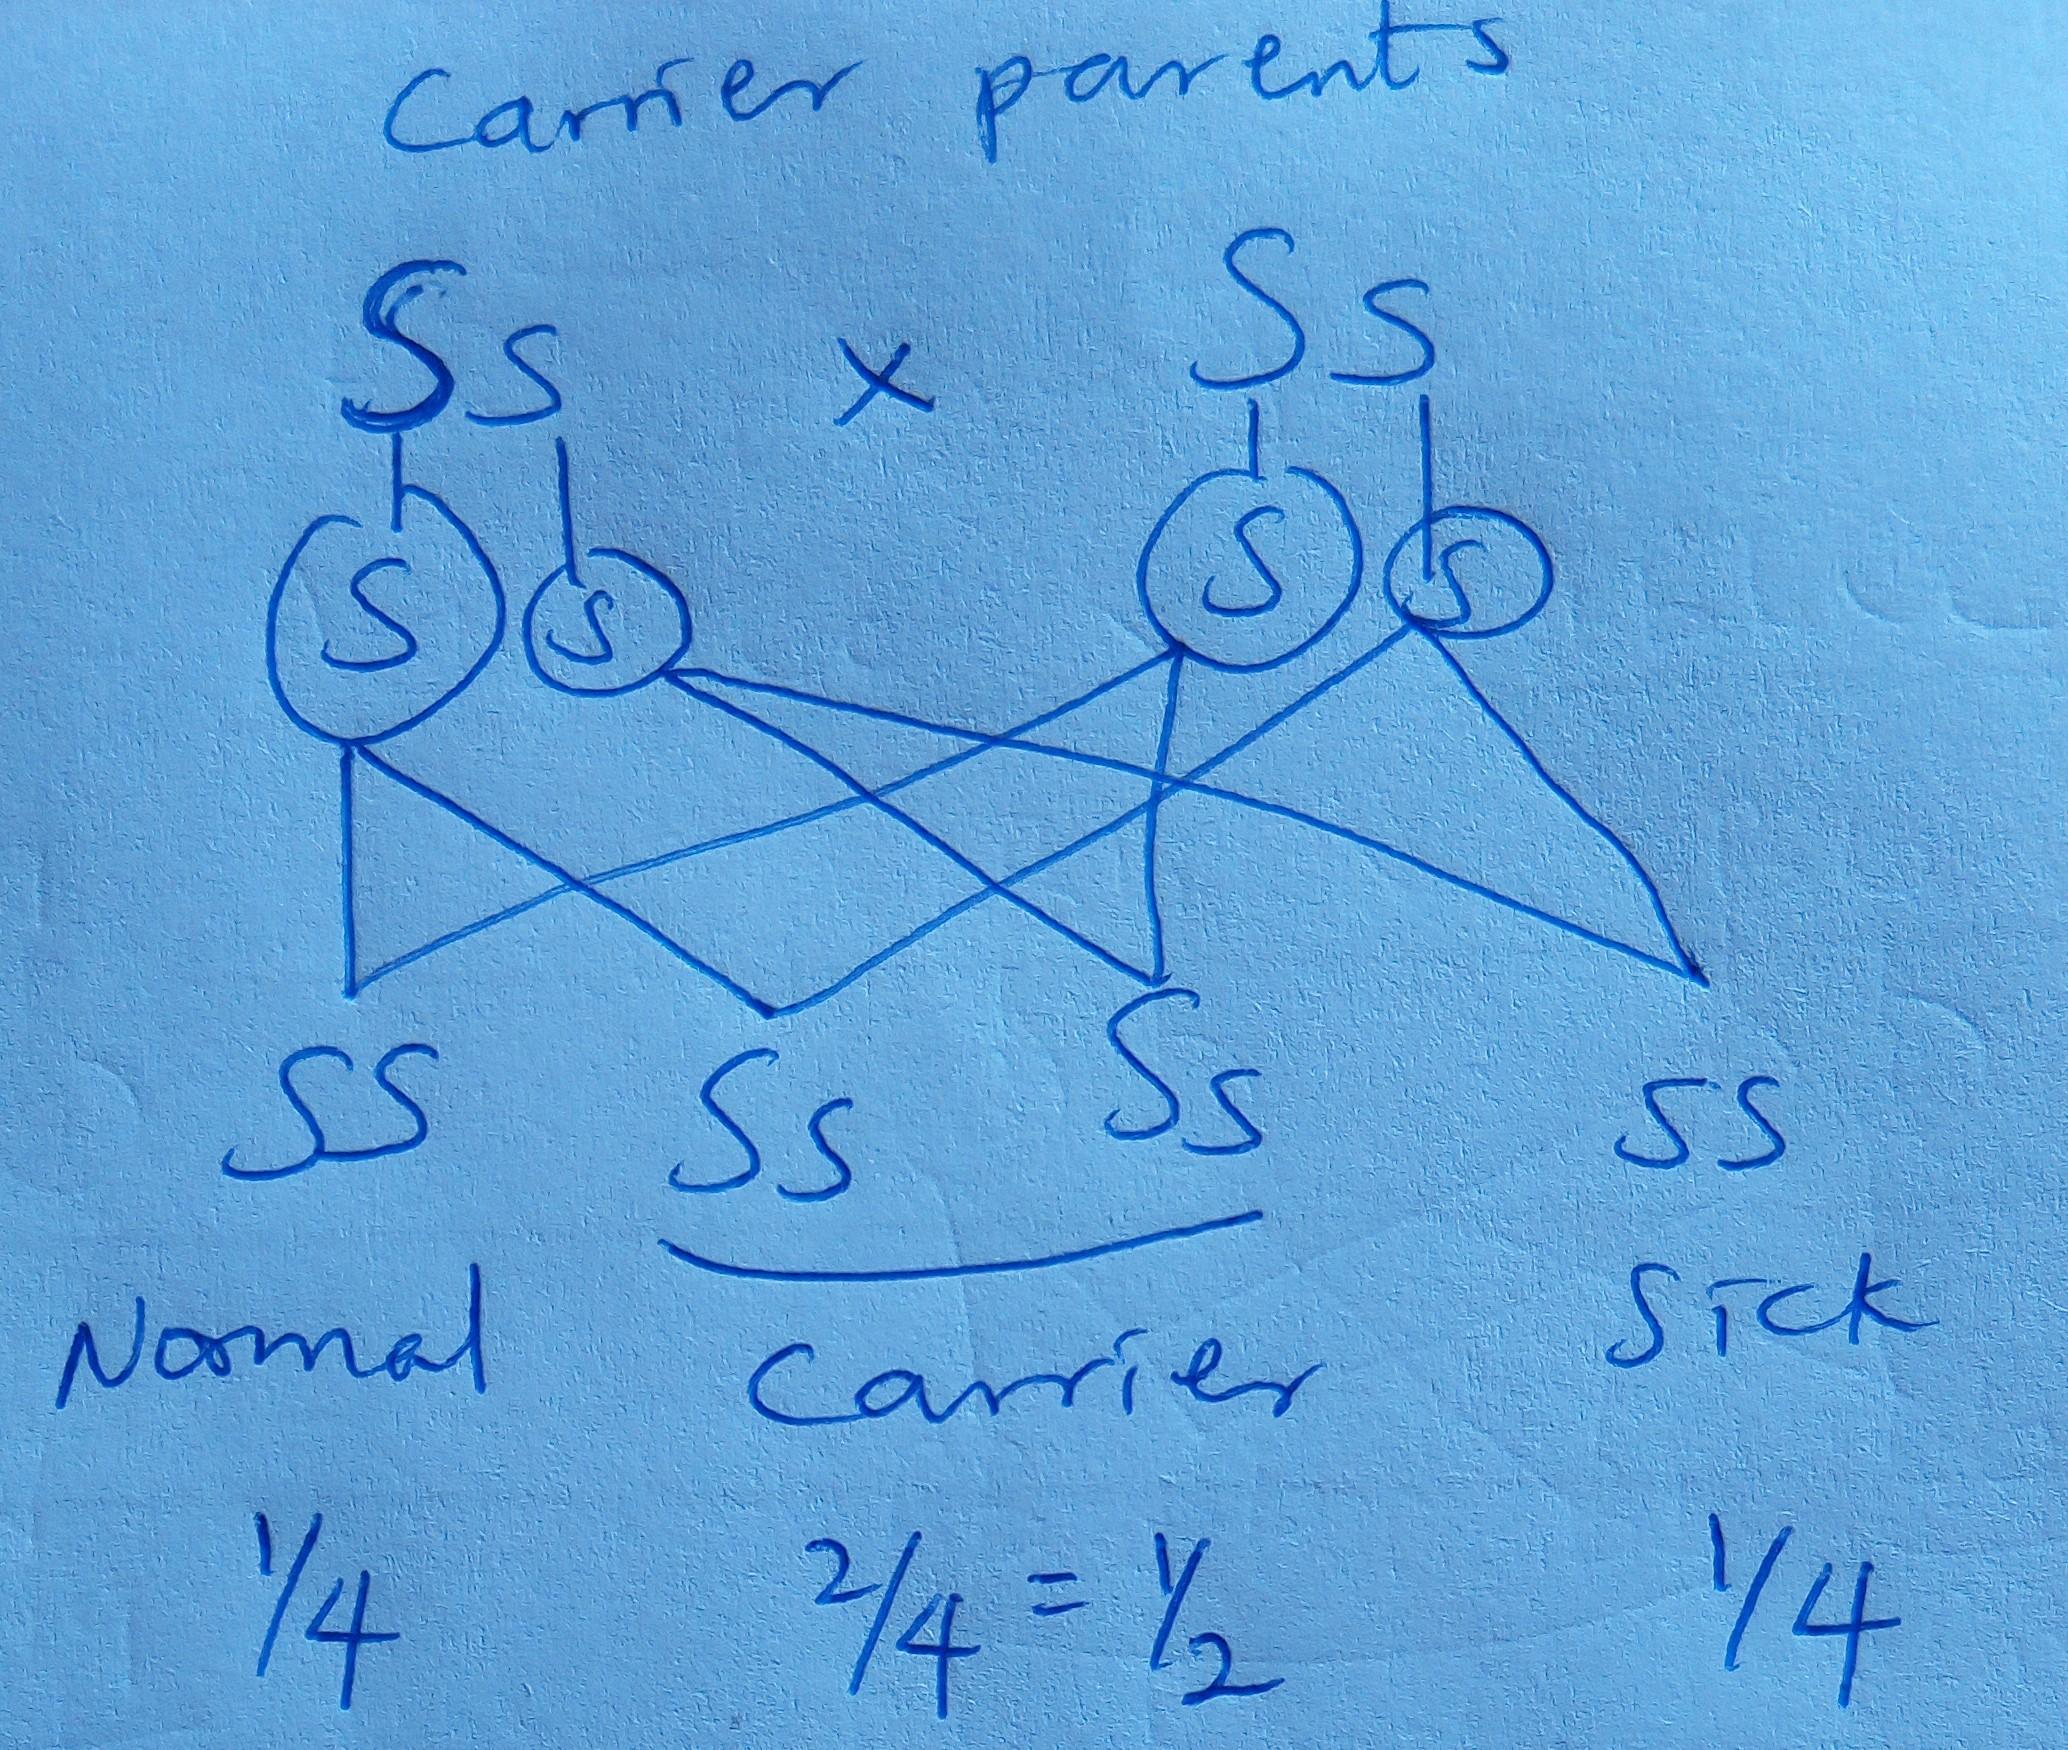 Carrier parents
Ss x Ss
S s S s
SS Ss Ss ss
Normal Carrier Sick
1/4 2/4 = 1/2 1/4